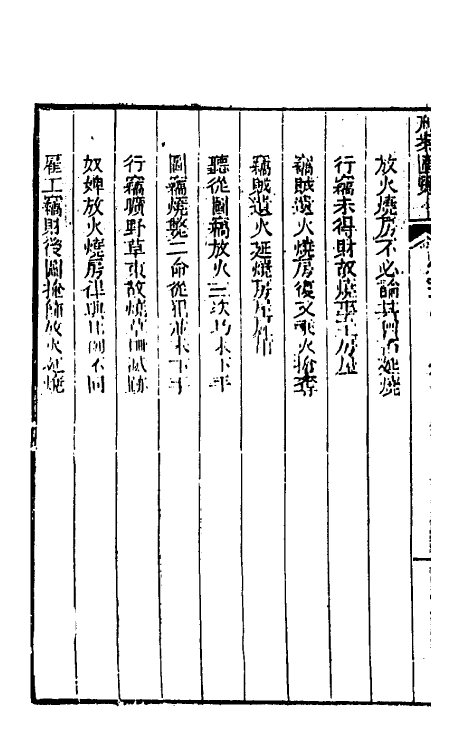 刑案匯覽
放火燒房不必論其曾否延燒
行竊未得財故燒事主房屋
竊賊遺火燒房復又乘火搶奪
竊賊遺火延燒房屋
聽從圖竊放火三次均未下手
圖竊燒斃二命從犯並未下手
行竊曠野草束故燒草滅跡
奴婢放火燒房律與例不同
雇工竊財後圖掩飾放火延燒